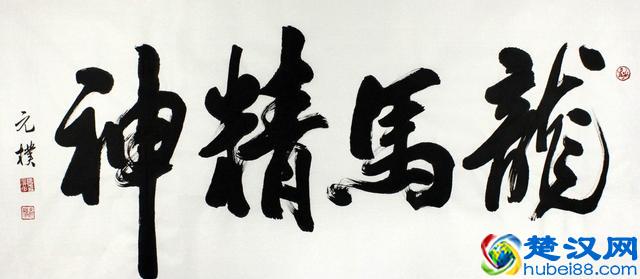 龍馬精神
元樸
楚汉网
hubei88.com